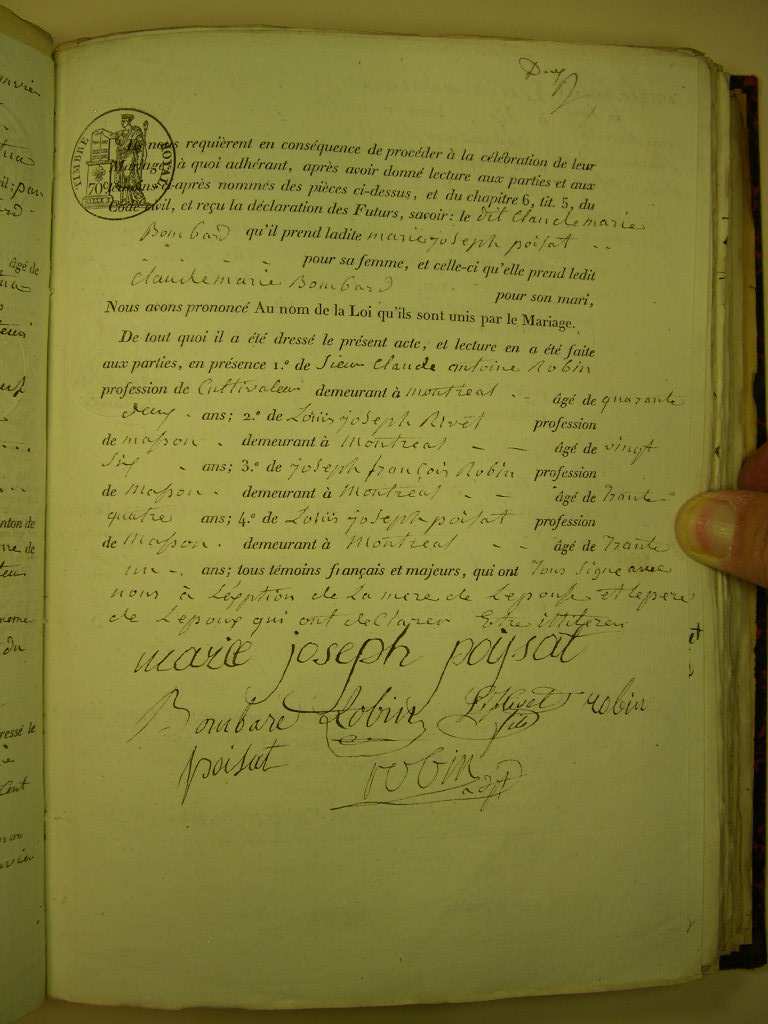 Deux
TIMBRE ROYAL
70c
Ils nous requièrent en conséquence de procéder à la célébration de leur
Mariage, à quoi adhérant, après avoir donné lecture aux parties et aux
témoins ci-après nommés des pièces ci-dessus, et du chapitre 6, tit. 5, du
Code civil, et reçu la déclaration des Futurs, savoir: le dit Claude marie
Bombard qu'il prend ladite marie joseph poisat
pour sa femme, et celle-ci qu'elle prend ledit
Claude marie Bombard
pour son mari,
Nous avons prononcé Au nom de la Loi qu'ils sont unis par le Mariage.
De tout quoi il a été dressé le présent acte, et lecture en a été faite
aux parties, en présence 1.º de Sieur Claude antoine Robin
profession de Cultivateur demeurant à montreal âgé de quarante
deux ans; 2.º de Louis joseph Rivet profession
de masson demeurant à Montreal âgé de vingt
six ans; 3.º de joseph françois Robin profession
de Masson demeurant à Montreal âgé de trante
quatre ans; 4.º de Louis joseph poisat profession
de Masson demeurant à Montreal âgé de trante
un ans; tous témoins français et majeurs, qui ont tous signé avec
nous à L'éxeption de La mere de Lepouse et le pere
de Lepoux qui ont declarer Etre illiteres
marie joseph poisat
Bombard Robin L. j. Rivet fils robin
poisat robin
adjt